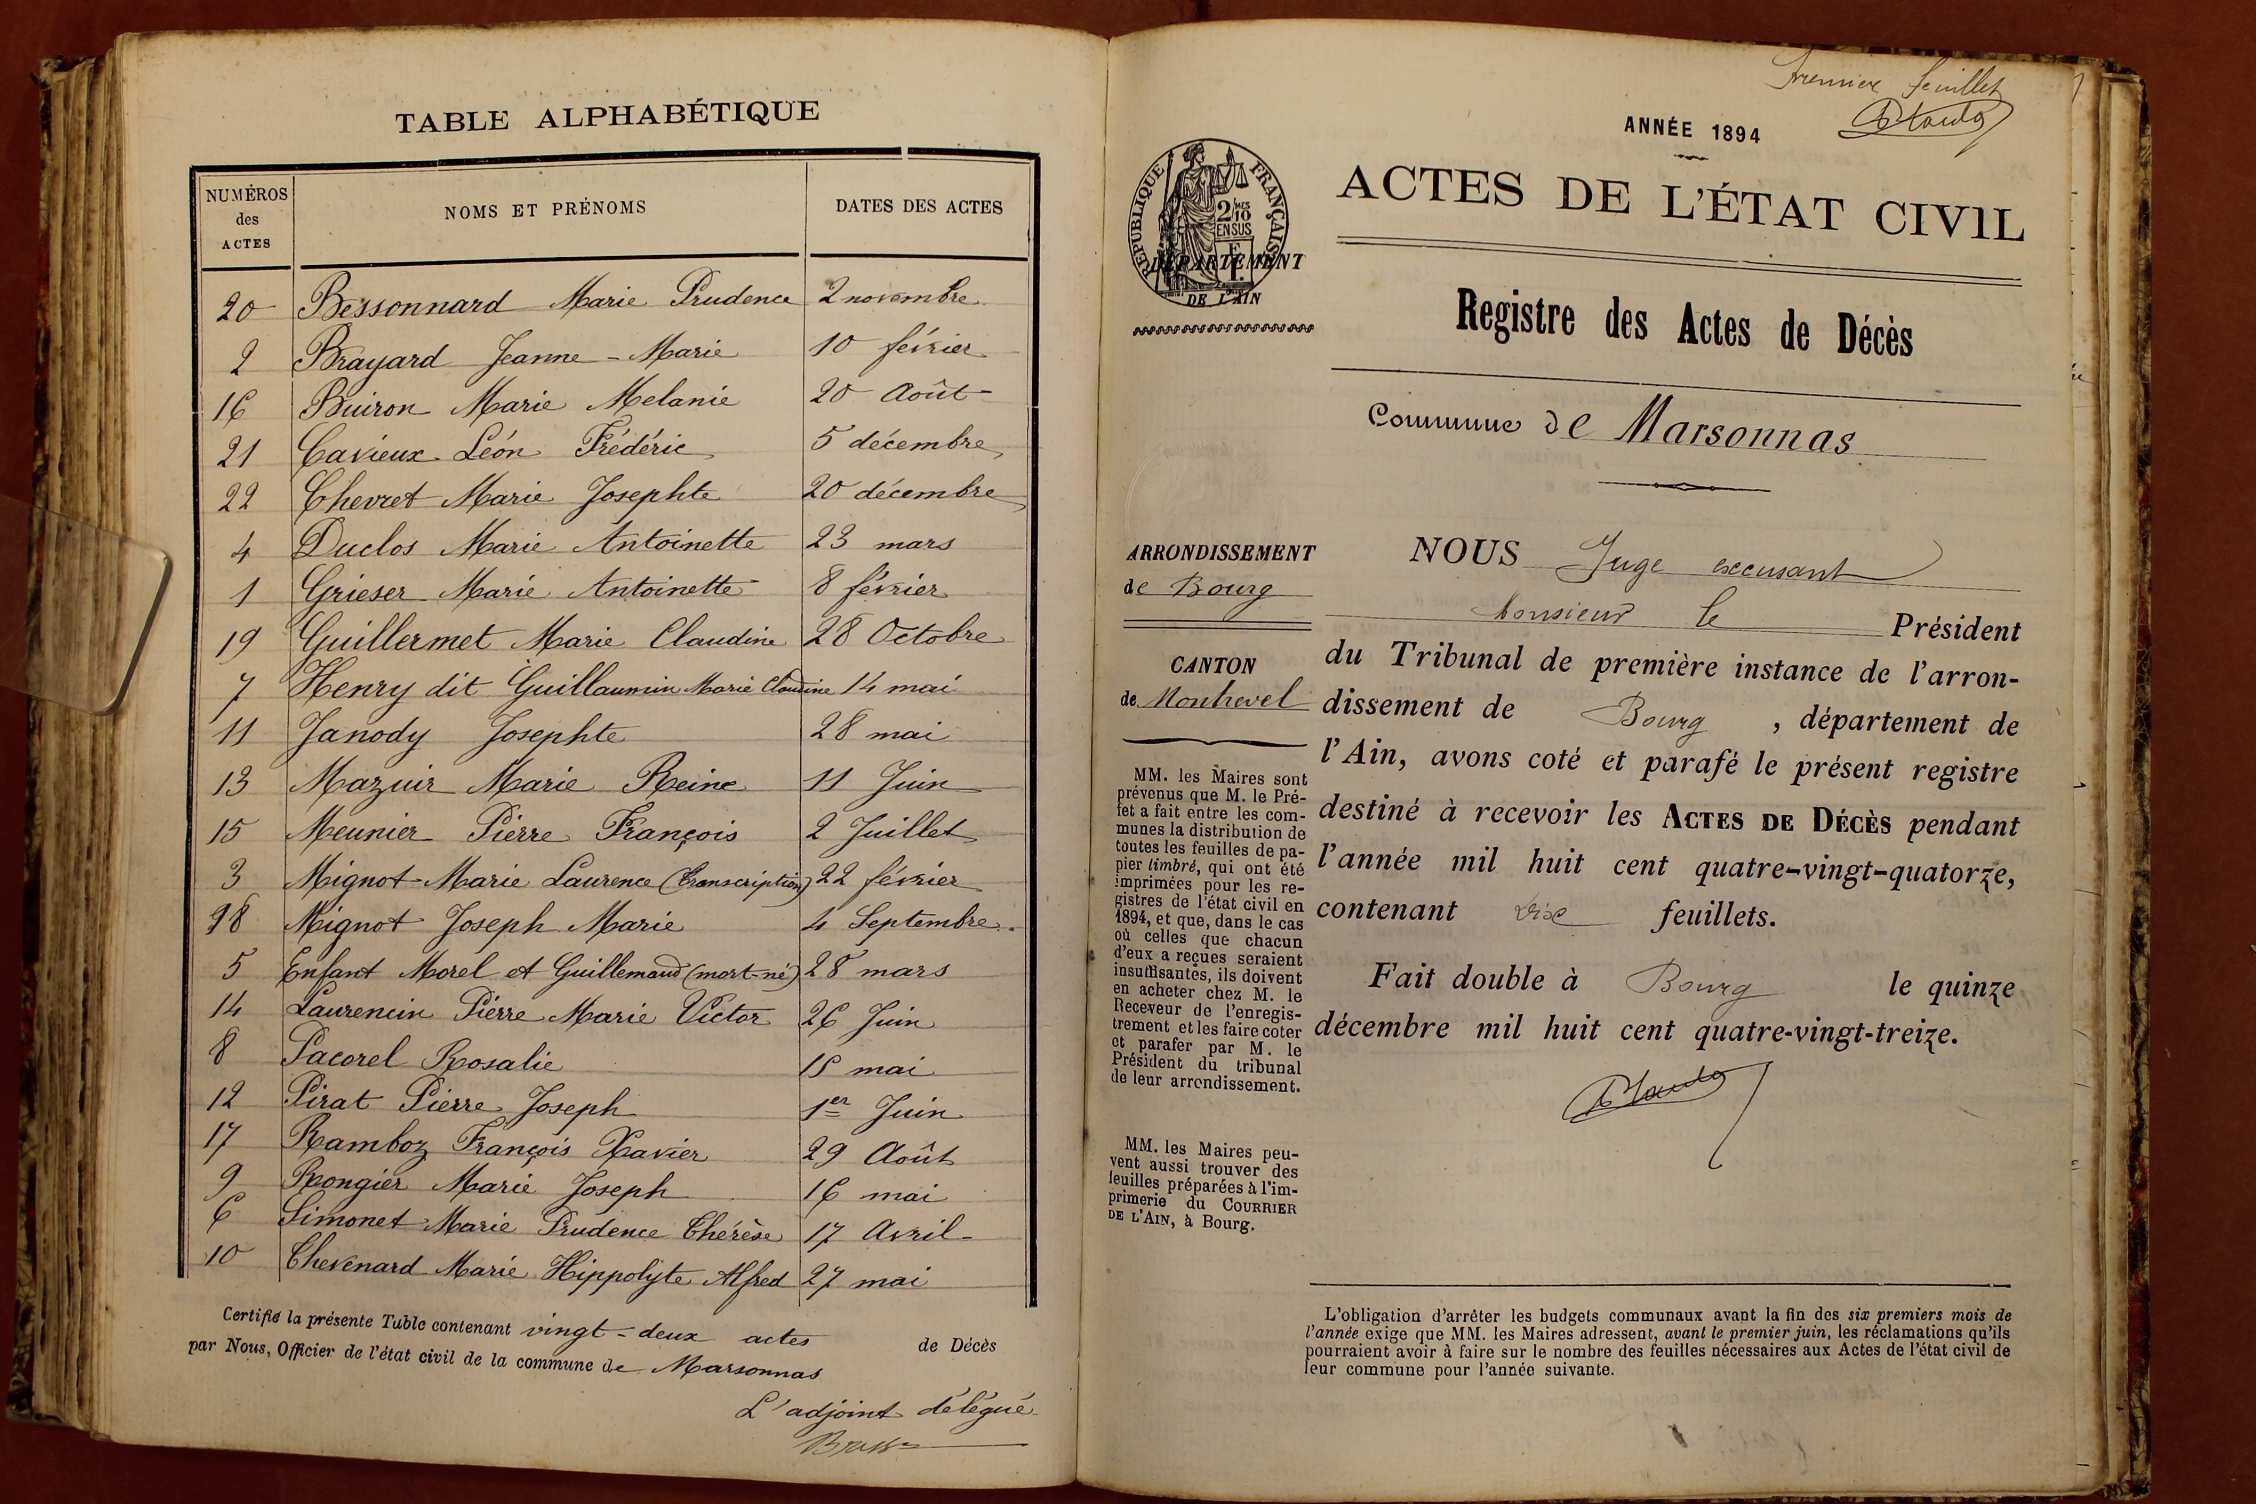 TABLE ALPHABÉTIQUE
NUMÉROS des ACTES NOMS ET PRÉNOMS DATES DES ACTES
20 Bessonnard Marie Prudence 2 novembre
2 Brayard Jeanne-Marie 10 février
16 Buiron Marie Melanie 20 Août
21 Cavieux Léon Frédéric 5 décembre
22 Chevret Marie Josephte 20 décembre
4 Duclos Marie Antoinette 23 mars
1 Grieser Marie Antoinette 8 février
19 Guillermet Marie Claudine 28 Octobre
7 Henry dit Guillaumin Marie Claudine 14 mai
11 Janody Josephte 28 mai
13 Mazuir Marie Reine 11 Juin
15 Meunier Pierre François 2 Juillet
3 Mignot Marie Laurence (transcription) 22 février
18 Mignot Joseph Marie 4 Septembre
5 Enfant Morel et Guillemaud (mort-né) 28 mars
14 Laurencin Pierre Marie Victor 26 Juin
8 Pacorel Rosalie 15 mai
12 Pirat Pierre Joseph 1er Juin
17 Ramboz François Xavier 29 Août
9 Rongier Marie Joseph 16 mai
6 Simonet Marie Prudence Thérèse 17 Avril
10 Thevenard Marie Hippolyte Alfred 27 mai
Certifié la présente Table contenant vingt-deux actes de Décès
par Nous, Officier de l'état civil de la commune de Marsonnas
L'adjoint délégué
Premier feuillet
ANNÉE 1894
RÉPUBLIQUE FRANÇAISE
2/10 MES
EN SUS
DÉPARTEMENT
DE L'AIN
ACTES DE L'ÉTAT CIVIL
Registre des Actes de Décès
Commune de Marsonnas
ARRONDISSEMENT
de Bourg
CANTON
de Montrevel
MM. les Maires sont
prévenus que M. le Pré-
fet a fait entre les com-
munes la distribution de
toutes les feuilles de pa-
pier timbré, qui ont été
imprimées pour les re-
gistres de l'état civil en
1894, et que, dans le cas
où celles que chacun
d'eux a reçues seraient
insuffisantes, ils doivent
en acheter chez M. le
Receveur de l'enregis-
trement et les faire coter
et parafer par M. le
Président du tribunal
de leur arrondissement.
MM. les Maires peu-
vent aussi trouver des
feuilles préparées à l'im-
primerie du COURRIER
DE L'AIN, à Bourg.
NOUS Juge excusant
Monsieur le Président
du Tribunal de première instance de l'arron-
dissement de Bourg, département de
l'Ain, avons coté et parafé le présent registre
destiné à recevoir les ACTES DE DÉCÈS pendant
l'année mil huit cent quatre-vingt-quatorze,
contenant feuillets.
Fait double à Bourg le quinze
décembre mil huit cent quatre-vingt-treize.
L'obligation d'arrêter les budgets communaux avant la fin des six premiers mois de
l'année exige que MM. les Maires adressent, avant le premier juin, les réclamations qu'ils
pourraient avoir à faire sur le nombre des feuilles nécessaires aux Actes de l'état civil de
leur commune pour l'année suivante.